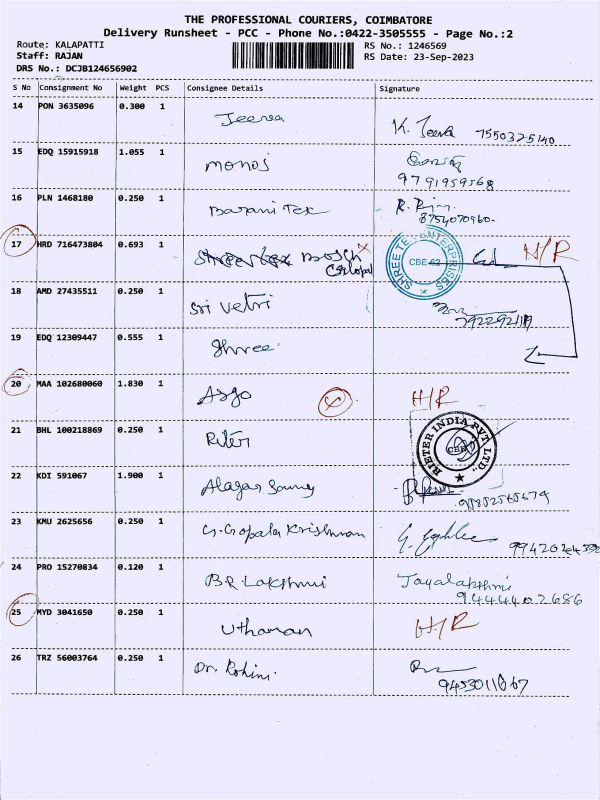 THE PROFESSIONAL COURIERS, COIMBATORE
Delivery Runsheet - PCC - Phone No.:0422-3505555 - Page No.:2
Route: KALAPATTI
Staff: RAJAN
DRS No.: DCJB124656902
RS No.: 1246569
RS Date: 23-Sep-2023
S No Consignment No Weight PCS Consignee Details Signature
14 PON 3635096 0.300 1 Jeeva K. Jeeva 7550325140
15 EDQ 15915918 1.055 1 Monoj
9791959568
16 PLN 1468180 0.250 1 Barani Tex
8754070960
17 HRD 716473804 0.693 1 Bosch N/R
SHREE TEX ENTERPRISES
CBE-62
18 AMD 27435511 0.250 1 Sri Vetri
19 EDQ 12309447 0.555 1 Shree
20 MAA 102680060 1.830 1 Argo H/R
21 BHL 100218869 0.250 1 Riter
RIETER INDIA PVT. LTD.,
CBE
22 KDI 591067 1.900 1 Alagar Samy
23 KMU 2625656 0.250 1 G. Gopala Krishnan
24 PRO 15270834 0.120 1 B.R. Lakshmi Jayalakshmi
9444402686
25 MYD 3041650 0.250 1 Uthaman H/R
26 TRZ 56003764 0.250 1 Dr. Rohini